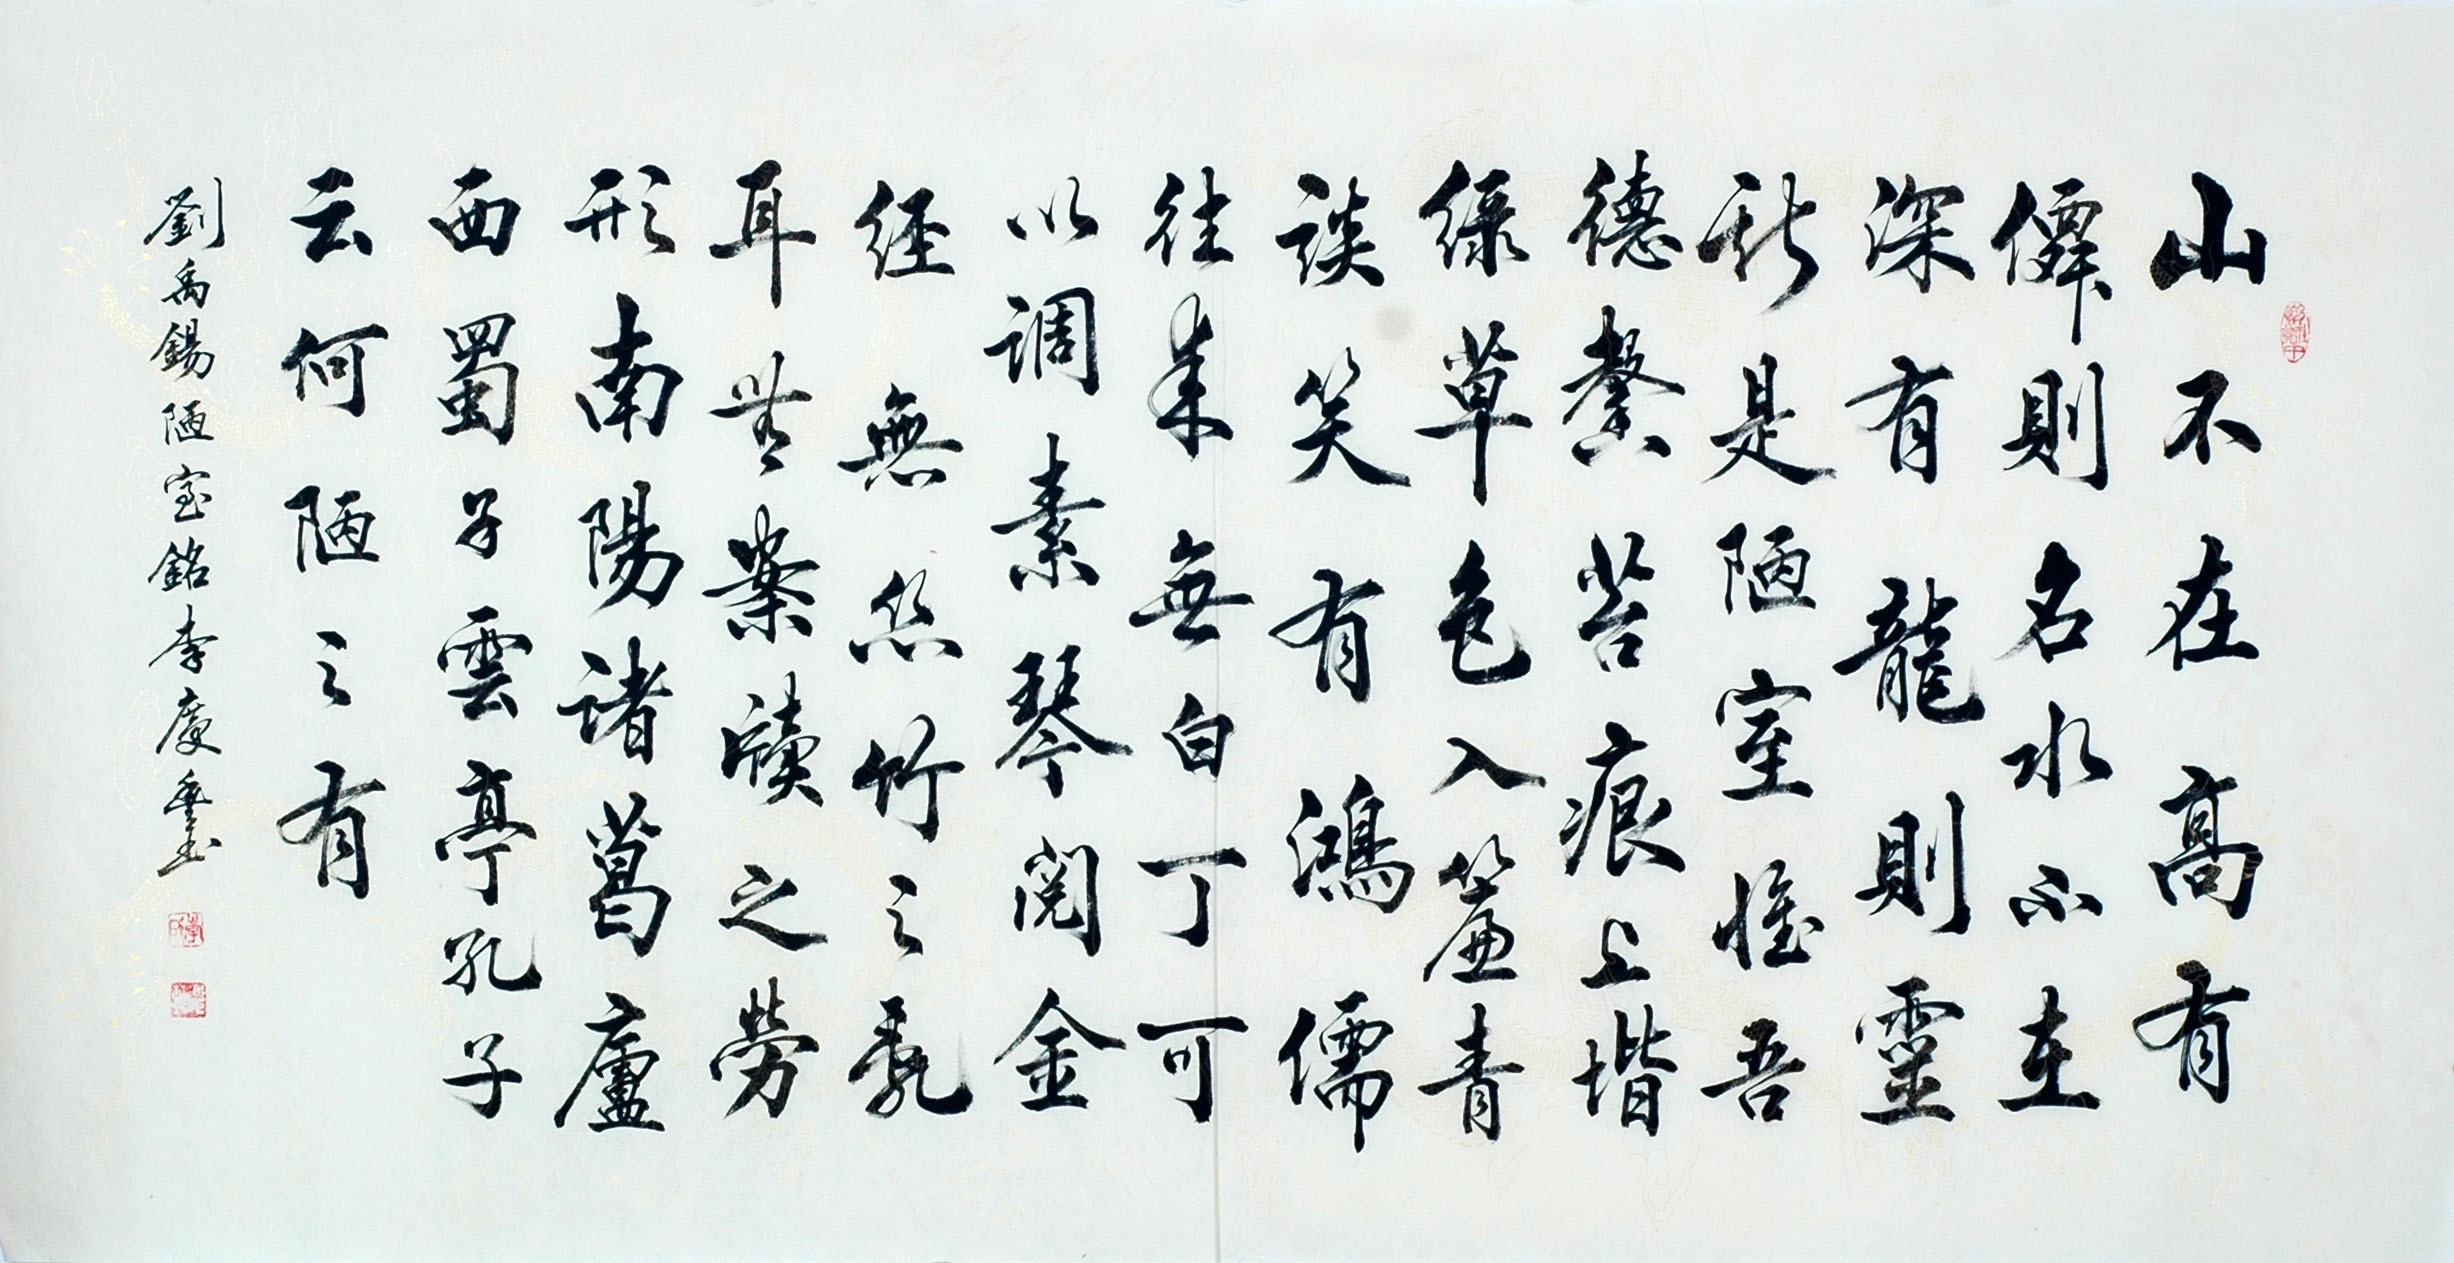 山不在高有
僊則名水不在
深有龍則靈
斯是陋室惟吾
德馨苔痕上堦
綠草色入簾青
談笑有鴻儒
往來無白丁可
以調素琴閱金
経無絲竹之亂
耳無案牘之勞
形南陽諸葛廬
西蜀子雲亭孔子
云何陋之有
劉禹錫陋室銘李慶